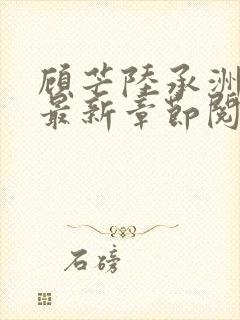 顾芒陸承洲
最新章節閱
石磅